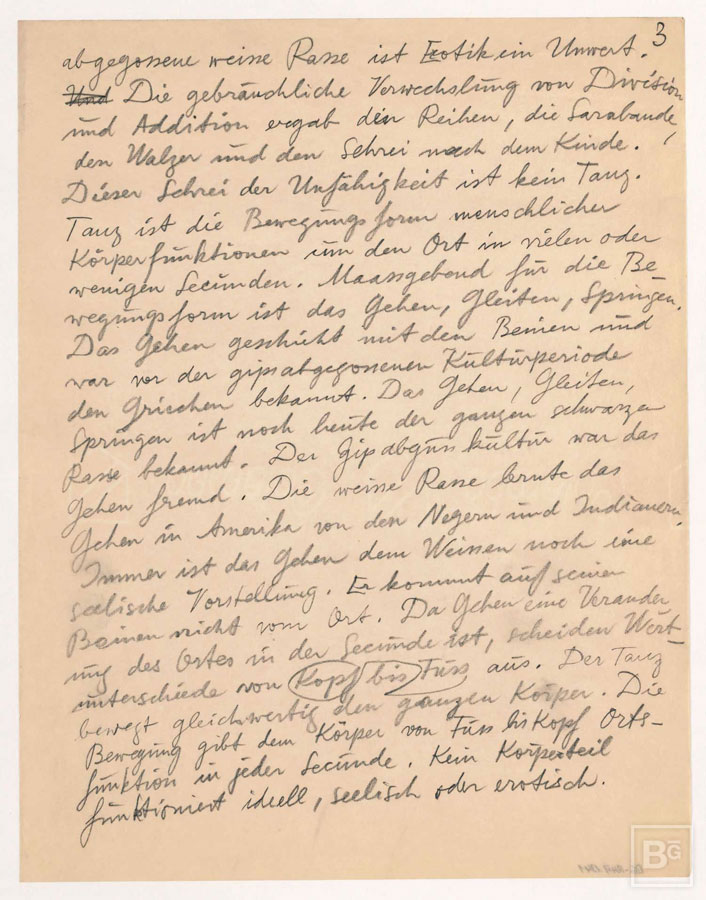 3
abgegossene weisse Rasse ist Erotik ein Unwert.
Und Die gebräuchliche Verwechslung von Division
und Addition ergab den Reihen, die Sarabande,
den Walzer und den Schrei nach dem Kinde.
Dieser Schrei der Unfähigkeit ist kein Tanz.
Tanz ist die Bewegungsform menschlicher
Körperfunktionen um den Ort in vielen oder
wenigen Secunden. Maassgebend für die Be
wegungsform ist das Gehen, Gleiten, Springen.
Das Gehen geschieht mit den Beinen und
war vor der gipsabgegossenen Kulturperiode
den Griechen bekannt. Das Gehen, Gleiten,
Springen ist noch heute der ganzen schwarzen
Rasse bekannt. Der Gipsabgusskultur war das
Gehen fremd. Die weisse Rasse lernte das
Gehen in Amerika von den Negern und Indianern.
Immer ist das Gehen dem Weissen noch eine
seelische Vorstellung. Er kommt auf seinen
Beinen nicht vom Ort. Da Gehen eine Veränder
ung des Ortes in der Secunde ist, scheiden Wert-
unterschiede von Kopf bis Fuss aus. Der Tanz
bewegt gleichwertig den ganzen Körper. Die
Bewegung gibt dem Körper von Fuss bis Kopf Orts-
funktion in jeder Secunde. Kein Körperteil
funktioniert ideell, seelisch oder erotisch.
BG